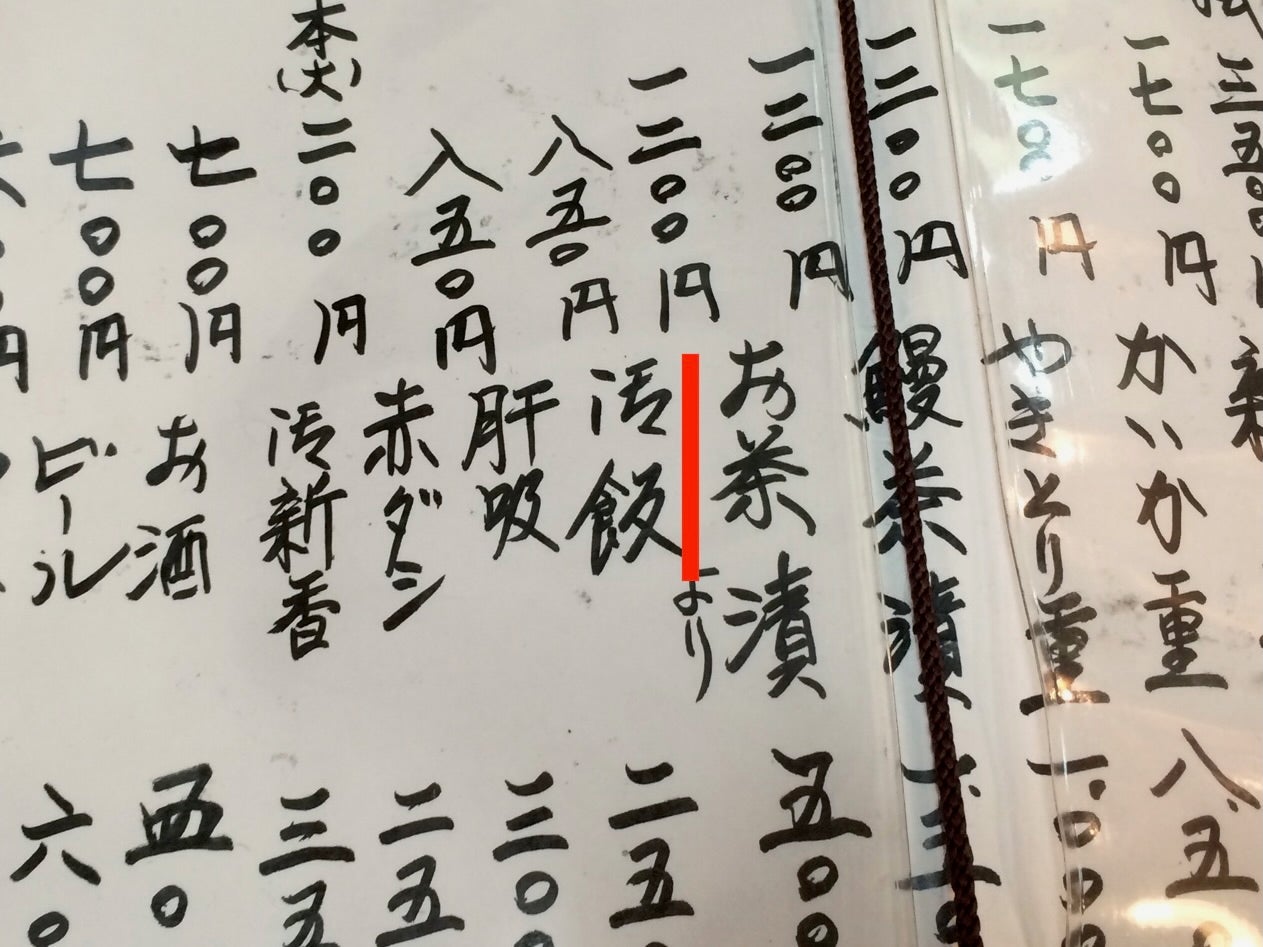 三五〇〇
一七〇〇円
一七〇〇円
一二〇〇円
一二〇〇円
一二〇〇円
八五〇円
八五〇円
本(大)二〇〇円
七〇〇円
七〇〇円
円
新
かいか重 八、五
やきとり重 一、〇〇〇
鰻茶漬 一、三〇
お茶漬 五〇〇
より
御飯 二五
肝吸 三〇
赤ダシ 二五
御新香 三五
お酒 四五〇
ビール 六〇